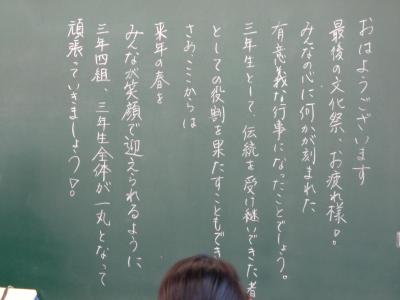 おはようございます
最後の文化祭、お疲れ様!!
みんなの心に何かが刻まれた
有意義な行事になったことでしょう。
三年生として、伝統を受け継いできた者
としての役割を果たすこともでき
さあ、ここからは
来年の春を
みんなが笑顔で迎えられるように
三年四組、三年生全体が一丸となって
頑張っていきましょう!!